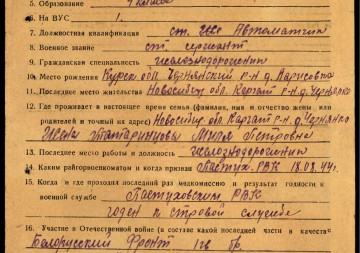 5. Образование 4 класса
6. На ВУС 1.
7. Должностная квалификация ст. Автоматчик
8. Военное звание ст. сержант
9. Гражданская специальность железнодорожник
10. Место рождения Курск обл р-н д.
11. Последнее место жительства Новосибир обл. Каргат р-н д.
12. Где проживает в настоящее время семья (фамилия, имя и отчество жены или
родителей и точный их адрес) Новосиб обл Каргат р-н д.
Жена Татаринцова Петровна
13. Последнее место работы и должность железнодорожник
14. Каким райгорвоенкоматом и когда призван РВК 18.08.44г.
15. Когда и где проходил последний раз медкомиссию и результат годности к
военной службе РВК
годен к строевой службе
16. Участие в Отечественной войне (в составе какой последней части и в качестве
Белорусский Фронт 1 гв бр.